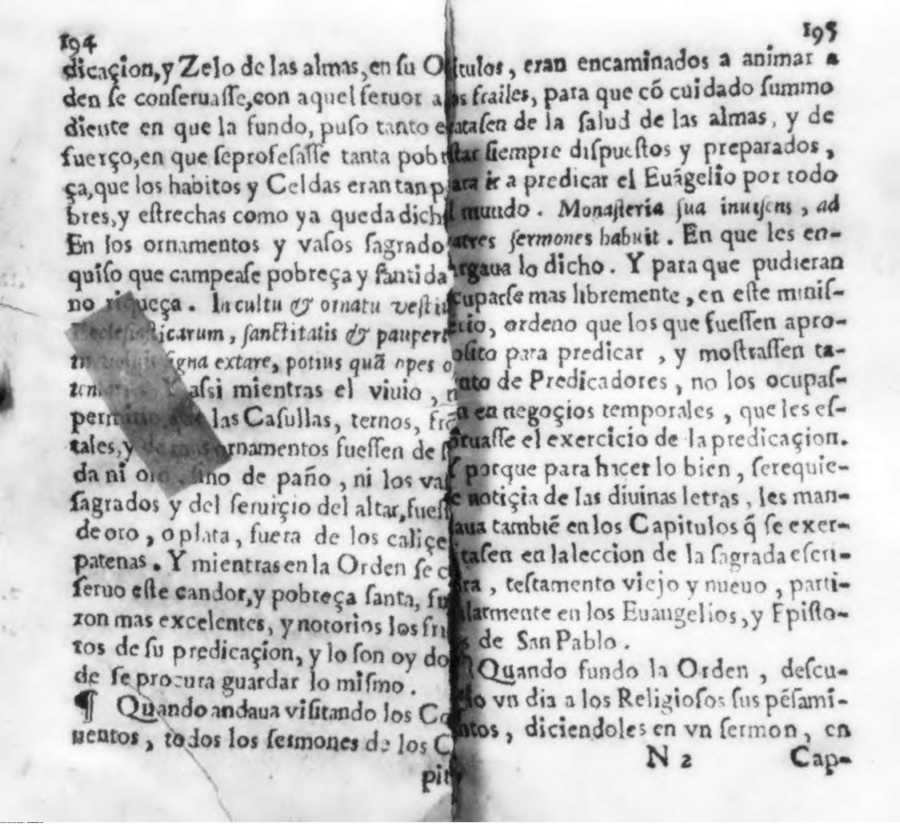 194
dicaçion, y Zelo de las almas, en su O
den se conseruasse, con aquel feruor a
diente en que la fundo, puso tanto e
fuerço, en que seprofesasse tanta pob
ça, que los habitos y Celdas eran tan p
bres, y estrechas como ya queda dich
En los ornamentos y vasos sagrado
quiso que campease pobreça y santida
no riqueça. In cultu & ornatu vestiu
Ecclesiasticarum, sanctitatis & paupert
signa extare, potius quã opes o
assi mientras el viuio, n
permitio que las Casullas, ternos, frõ
tales, y demas ornamentos fuessen de s
da ni oro, sino de paño, ni los vas
sagrados y del seruiçio del altar, fuess
de oro, o plata, fuera de los caliçe
patenas. Y mientras en la Orden se c
seruo este candor, y pobreça santa, fu
ron mas excelentes, y notorios los fru
tos de su predicaçion, y lo son oy do
de se procura guardar lo mismo.
¶ Quando andaua visitando los Co
uentos, todos los sermones de los C
pit
195
itulos, eran encaminados a animar a
os frailes, para que cõ cuidado summo
atasen de la salud de las almas, y de
star siempre dispuestos y preparados,
ara ir a predicar el Euãgelio por todo
l mundo. Monasteria sua inuisens, ad
atres sermones habuit. En que les en-
argaua lo dicho. Y para que pudieran
cuparse mas libremente, en este minis-
erio, ordeno que los que fuessen apro-
osito para predicar, y mostrassen ta-
ento de Predicadores, no los ocupas-
n en negoçios temporales, que les es-
oruasse el exercicio de la predicaçion.
porque para hacer lo bien, serequie-
e notiçia de las diuinas letras, les man-
aua tambiẽ en los Capitulos q̃ se exer-
itasen en la leccion de la sagrada escri-
ura, testamento viejo y nueuo, parti-
ularmente en los Euangelios, y Episto-
s de San Pablo.
¶ Quando fundo la Orden, descu-
io vn dia a los Religiosos sus pẽsami-
ntos, diciendoles en vn sermon, en
N 2 Cap-